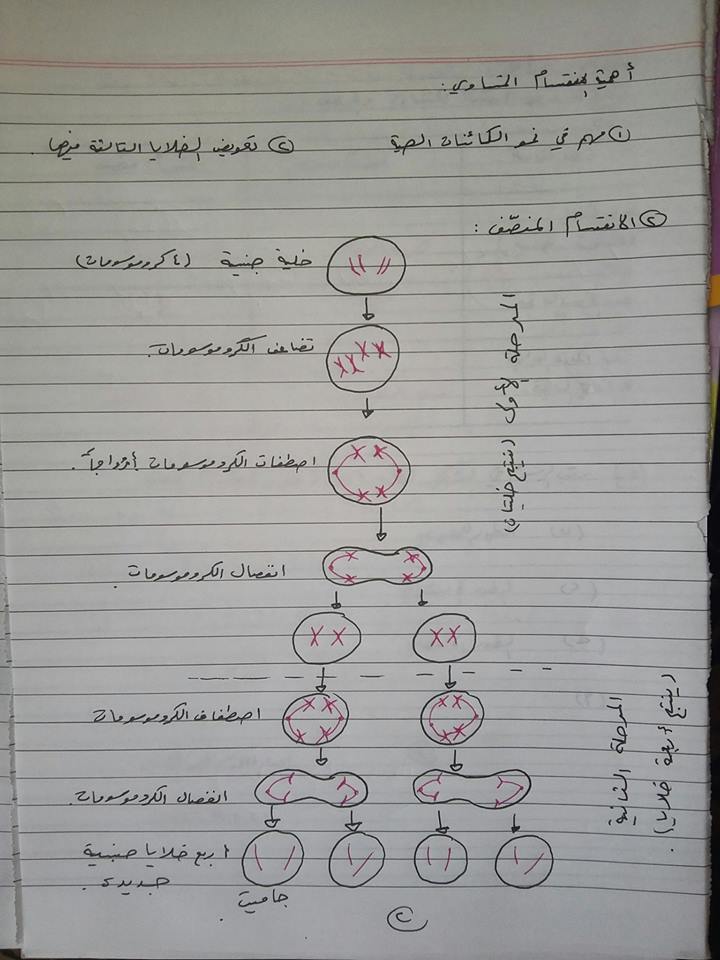 أهمية الانقسام المتساوي:
① مهم في نمو الكائنات الحية ② تعويض الخلايا التالفة فيها.
② الانقسام المنصّف:
خلية جنسية (٤ كروموسومات)
تضاعف الكروموسومات.
اصطفاف الكروموسومات أزواجاً.
انفصال الكروموسومات
المرحلة الأولى (ينتج خليتان)
اصطفاف الكروموسومات
انفصال الكروموسومات.
أربع خلايا جنسية
جديدة.
جاميت
المرحلة الثانية
(ينتج أربعة خلايا).
②